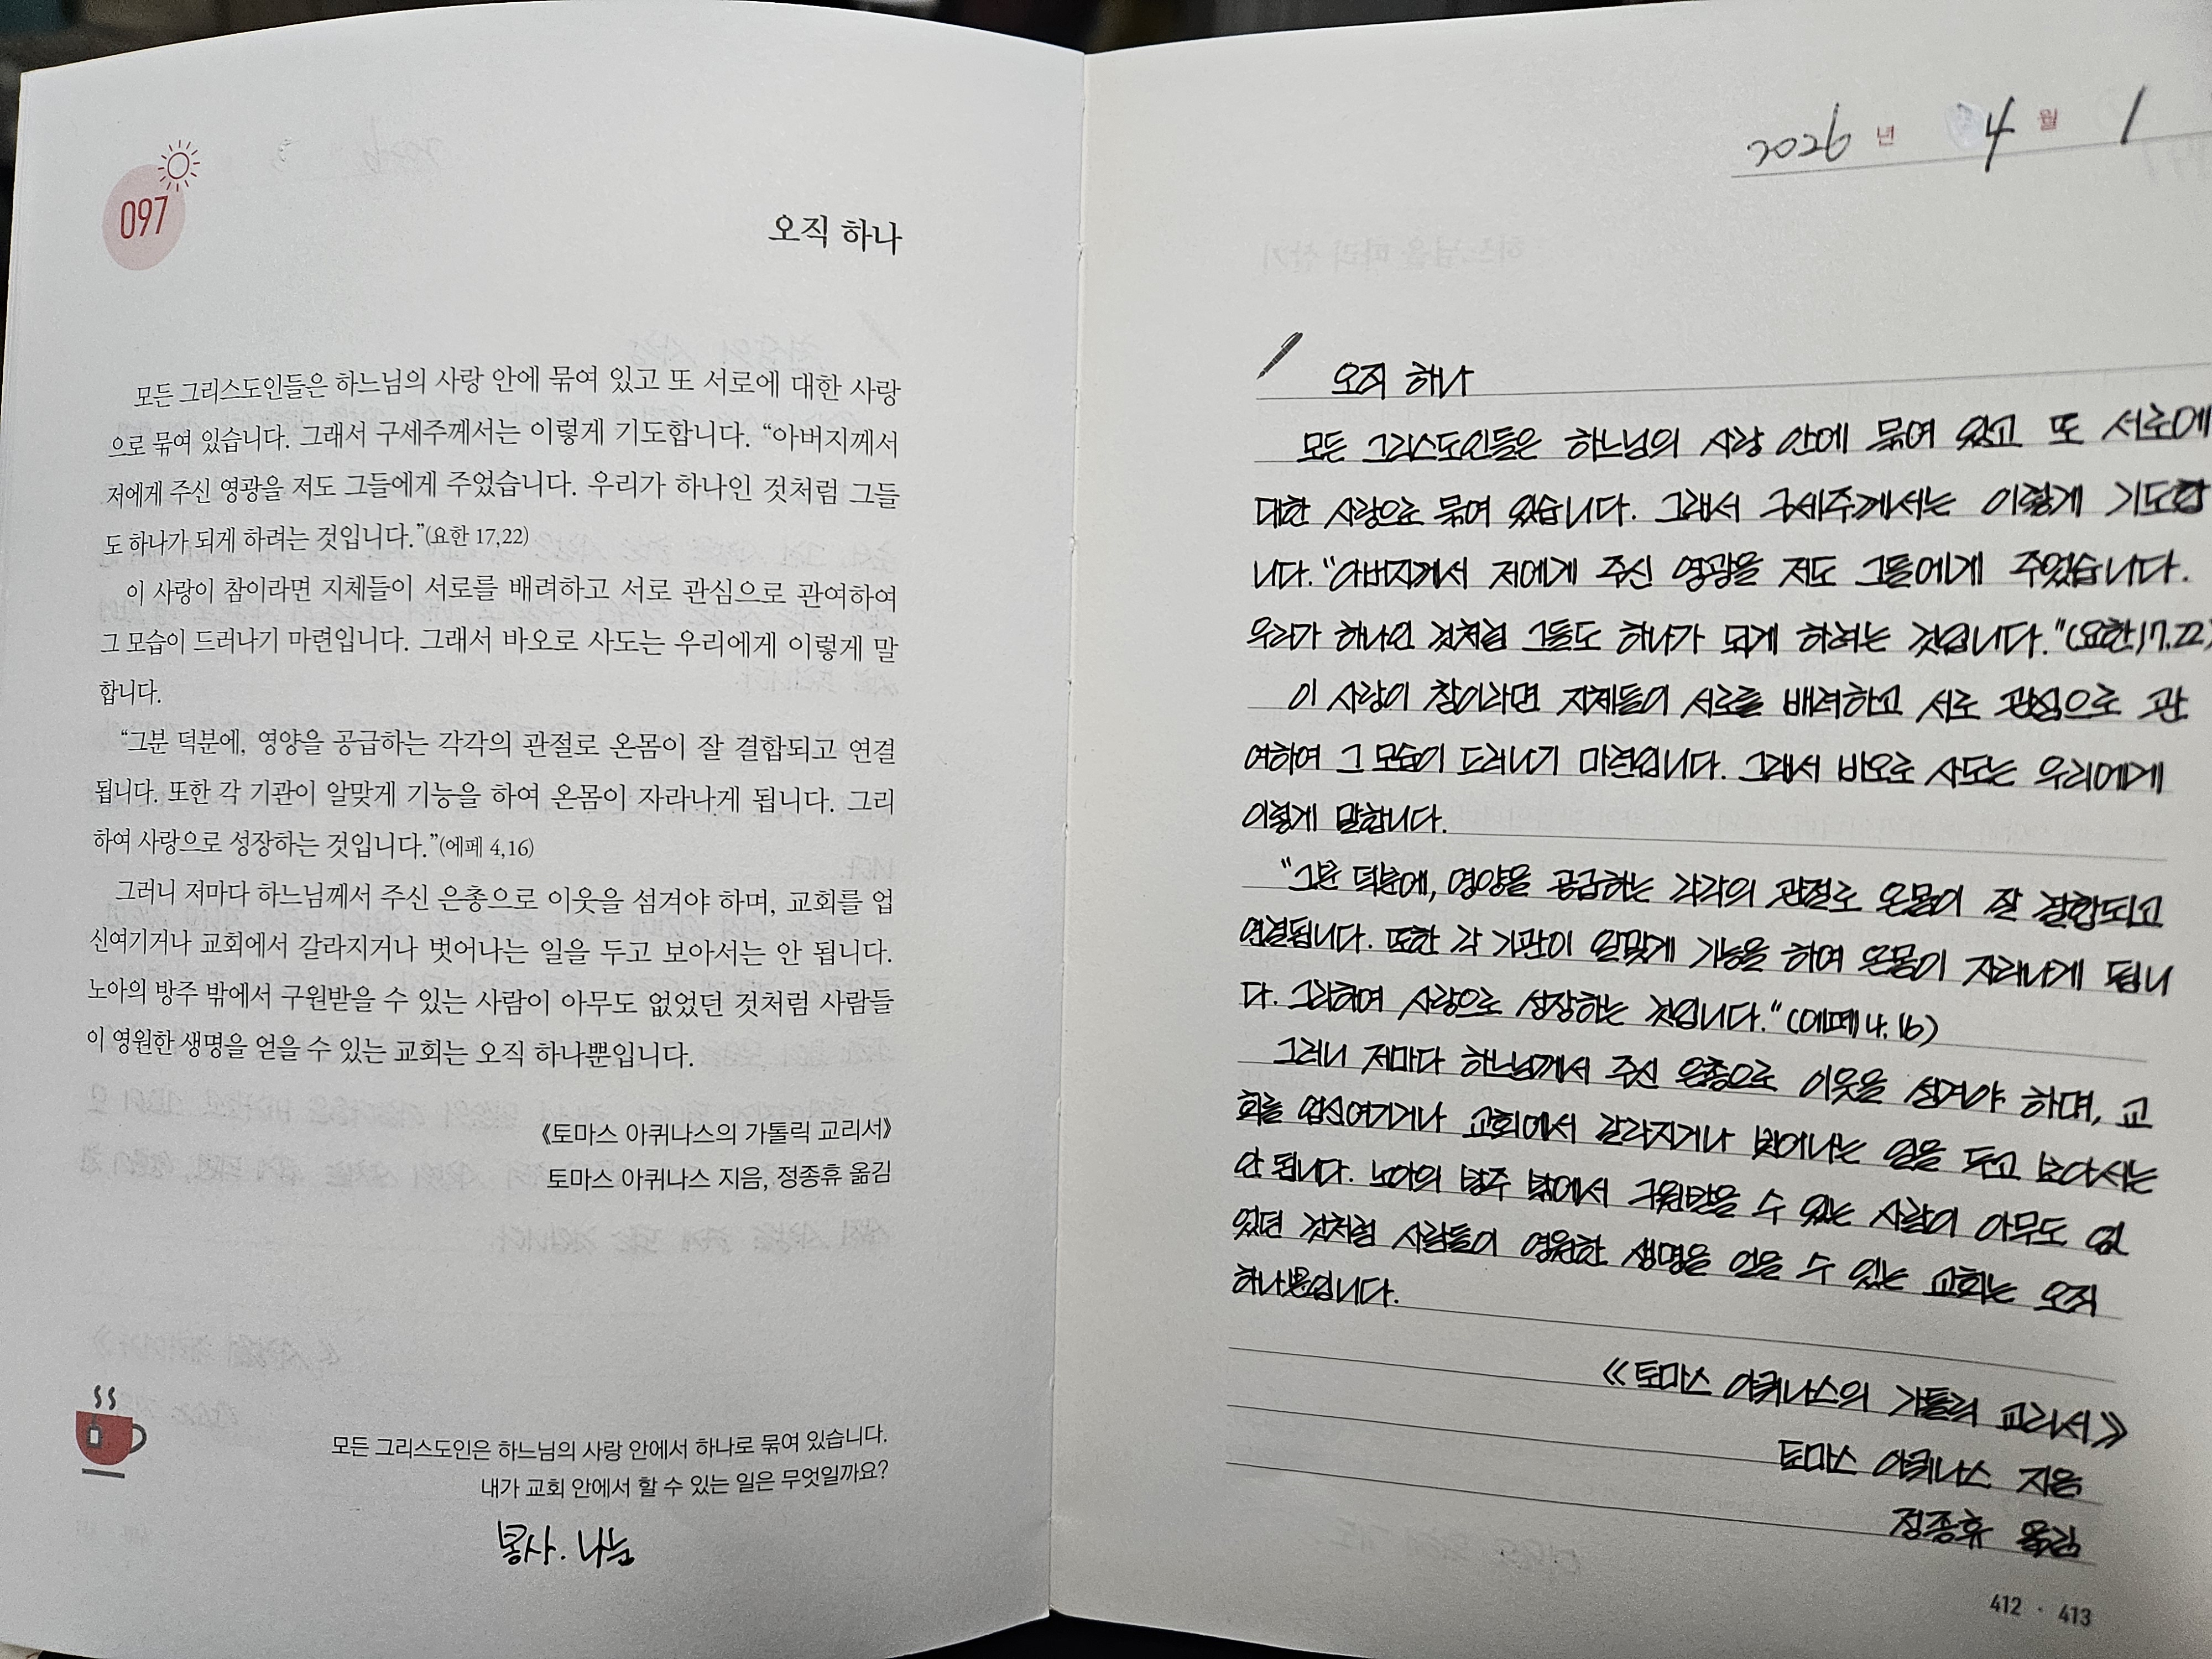 097
오직 하나
모든 그리스도인들은 하느님의 사랑 안에 묶여 있고 또 서로에 대한 사랑
으로 묶여 있습니다. 그래서 구세주께서는 이렇게 기도합니다. “아버지께서
저에게 주신 영광을 저도 그들에게 주었습니다. 우리가 하나인 것처럼 그들
도 하나가 되게 하려는 것입니다.”(요한 17,22)
이 사랑이 참이라면 지체들이 서로를 배려하고 서로 관심으로 관여하여
그 모습이 드러나기 마련입니다. 그래서 바오로 사도는 우리에게 이렇게 말
합니다.
“그분 덕분에, 영양을 공급하는 각각의 관절로 온몸이 잘 결합되고 연결
됩니다. 또한 각 기관이 알맞게 기능을 하여 온몸이 자라나게 됩니다. 그리
하여 사랑으로 성장하는 것입니다.”(에페 4,16)
그러니 저마다 하느님께서 주신 은총으로 이웃을 섬겨야 하며, 교회를 업
신여기거나 교회에서 갈라지거나 벗어나는 일을 두고 보아서는 안 됩니다.
노아의 방주 밖에서 구원받을 수 있는 사람이 아무도 없었던 것처럼 사람들
이 영원한 생명을 얻을 수 있는 교회는 오직 하나뿐입니다.
《토마스 아퀴나스의 가톨릭 교리서》
토마스 아퀴나스 지음, 정종휴 옮김
모든 그리스도인은 하느님의 사랑 안에서 하나로 묶여 있습니다.
내가 교회 안에서 할 수 있는 일은 무엇일까요?
2026 년 4 월 1
오직 하나
모든 그리스도인들은 하느님의 사랑 안에 묶여 있고 또 서로에
대한 사랑으로 묶여 있습니다. 그래서 구세주께서는 이렇게 기도합
니다. "아버지께서 저에게 주신 영광을 저도 그들에게 주었습니다.
우리가 하나인 것처럼 그들도 하나가 되게 하려는 것입니다."(요한17.22)
이 사랑이 참이라면 지체들이 서로를 배려하고 서로 관심으로 관
여하여 그 모습이 드러나기 마련입니다. 그래서 바오로 사도는 우리에게
이렇게 말합니다.
"그분 덕분에, 영양을 공급하는 각각의 관절로 온몸이 잘 결합되고
연결됩니다. 또한 각 기관이 알맞게 기능을 하여 온몸이 자라나게 됩니
다. 그리하여 사랑으로 성장하는 것입니다."(에페 4. 16)
그러니 저마다 하느님께서 주신 은총으로 이웃을 섬겨야 하며, 교
회를 업신여기거나 교회에서 갈라지거나 벗어나는 일을 두고 보아서는
안 됩니다. 노아의 방주 밖에서 구원받을 수 있는 사람이 아무도 없
었던 것처럼 사람들이 영원한 생명을 얻을 수 있는 교회는 오직
하나뿐입니다.
《토마스 아퀴나스의 가톨릭 교리서》
토마스 아퀴나스 지음
정종휴 옮김
412 · 413